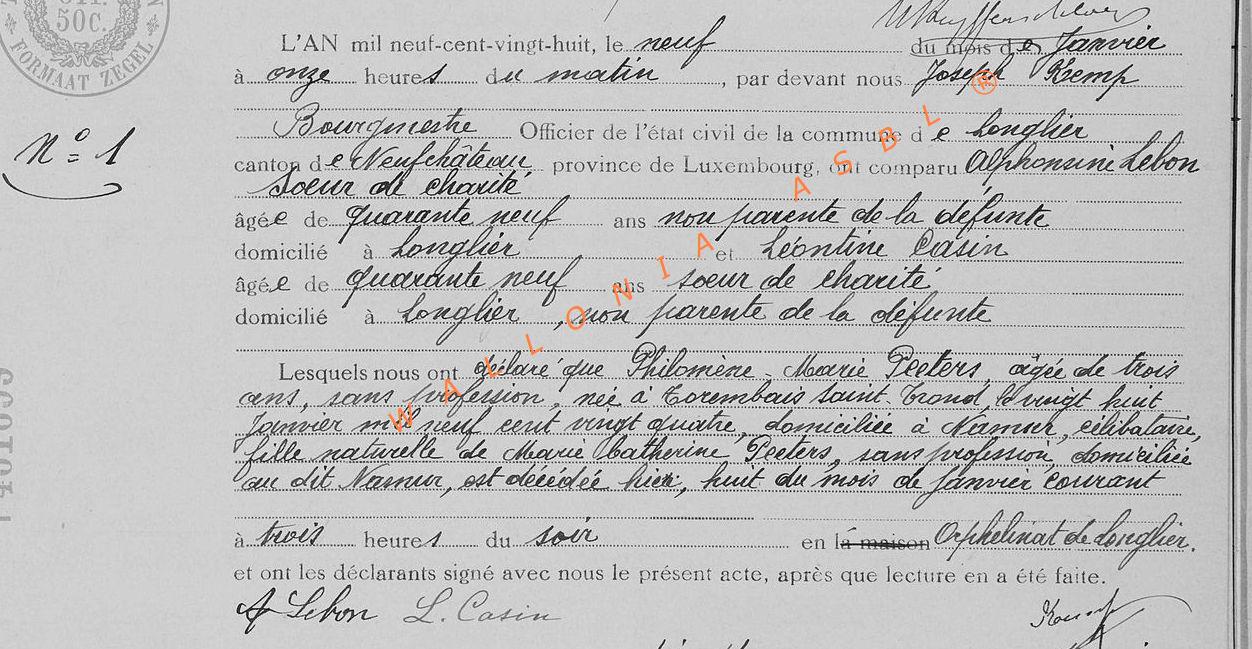 50C.
FORMAAT ZEGEL
L'AN mil neuf-cent-vingt-huit, le neuf du mois de Janvier
à onze heures du matin, par devant nous Joseph Kemp
Bourgmestre Officier de l'état civil de la commune de Longlier
N° = 1
canton de Neufchâteau province de Luxembourg, ont comparu Alphonsine Lebon
Soeur de charité
âgée de quarante neuf ans non parente de la défunte
domicilié à Longlier et Léontine Casin
âgée de quarante neuf ans soeur de charité
domicilié à Longlier, non parente de la défunte
Lesquels nous ont déclaré que Philomène-Marie Peeters, âgée de trois
ans, sans profession, née à Torembais Saint-Trond le vingt huit
Janvier mil neuf cent vingt quatre, domiciliée à Namur, célibataire,
fille naturelle de Marie Catherine Peeters, sans profession, domiciliée
au dit Namur, est décédée hier, huit du mois de Janvier courant
à trois heures du soir en la maison Orphelinat de Longlier.
et ont les déclarants signé avec nous le présent acte, après que lecture en a été faite.
A Lebon L. Casin
WALLONIA ASBL ®